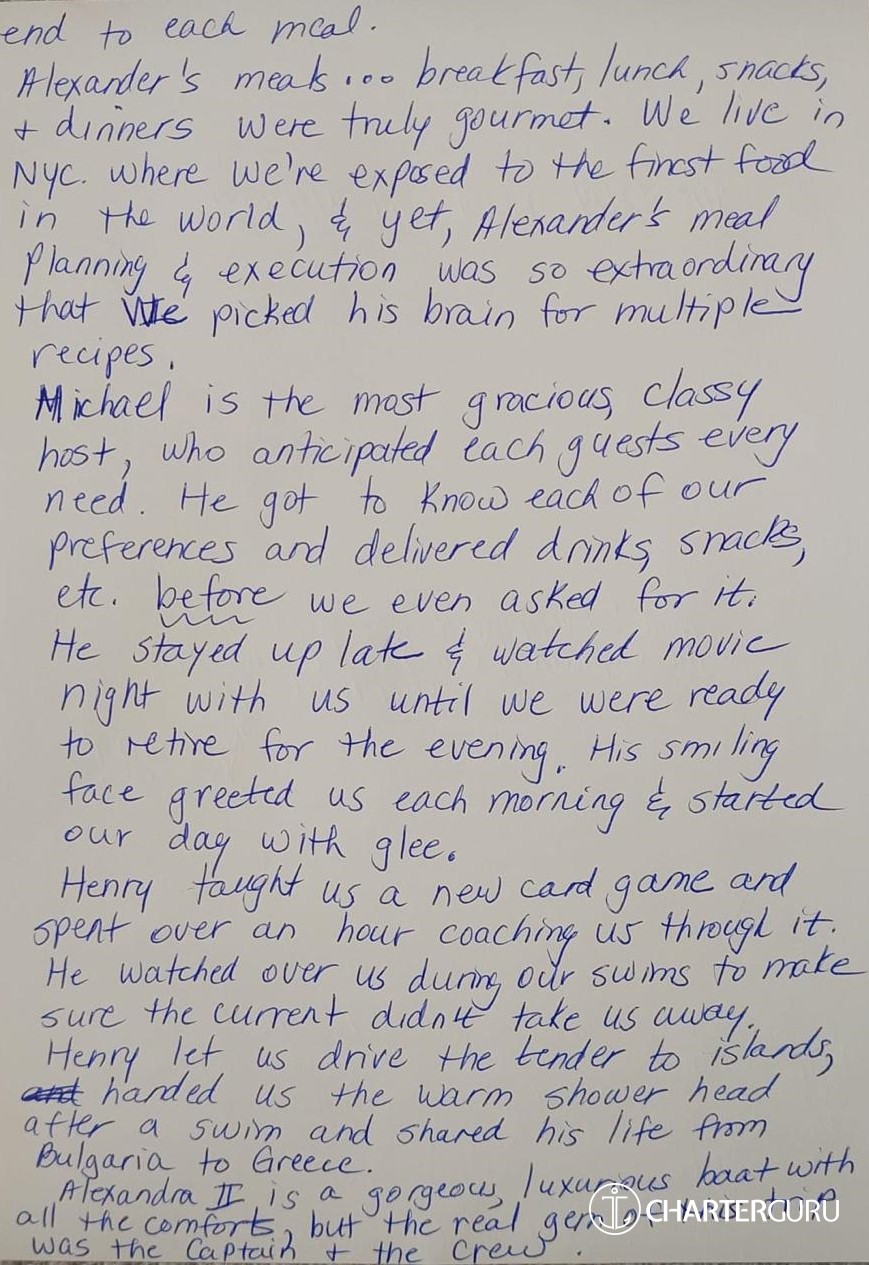 end to each meal.
Alexander's meals... breakfast, lunch, snacks,
+ dinners were truly gourmet. We live in
NYC. where we're exposed to the finest food
in the world, & yet, Alexander's meal
planning & execution was so extraordinary
that we picked his brain for multiple
recipes.
Michael is the most gracious, classy
host, who anticipated each guests every
need. He got to know each of our
preferences and delivered drinks, snacks,
etc. before we even asked for it.
He stayed up late & watched movie
night with us until we were ready
to retire for the evening. His smiling
face greeted us each morning & started
our day with glee.
Henry taught us a new card game and
spent over an hour coaching us through it.
He watched over us during our swims to make
sure the current didn't take us away.
Henry let us drive the tender to islands,
and handed us the warm shower head
after a swim and shared his life from
Bulgaria to Greece.
Alexandra II is a gorgeous, luxurious boat with
all the comforts, but the real gem of this trip
was the Captain + the crew.
CHARTERGURU